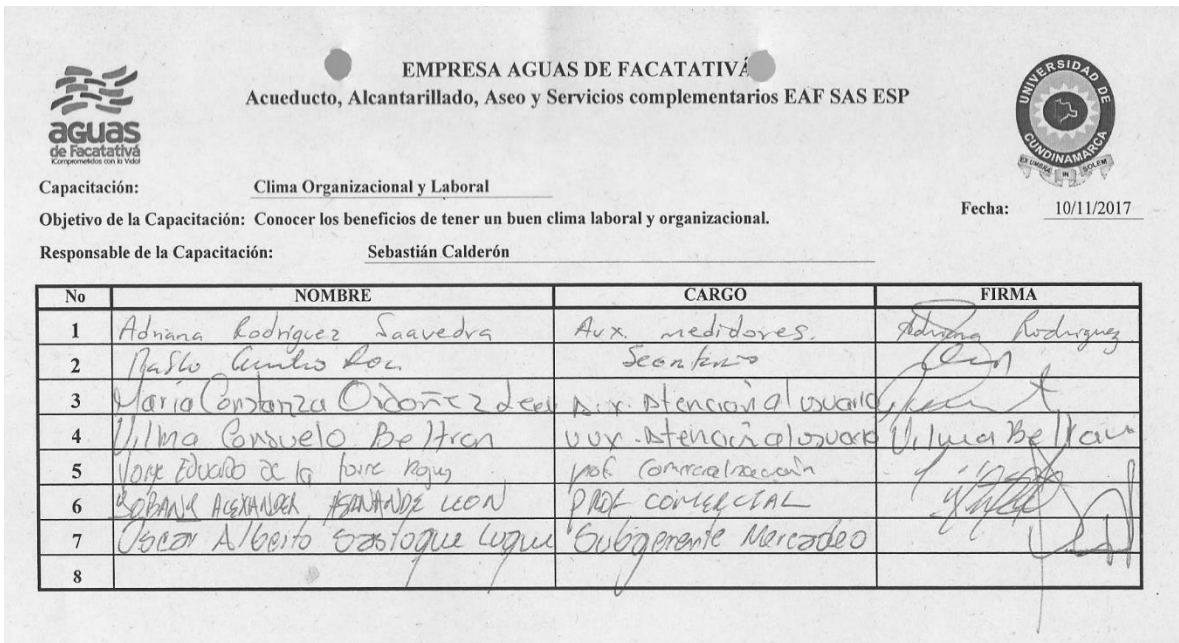 EMPRESA AGUAS DE FACATATIVÁ
Acueducto, Alcantarillado, Aseo y Servicios complementarios EAF SAS ESP
aguas
de Facatativá
¡Comprometidos con la Vida!
UNIVERSIDAD DE CUNDINAMARCA
EX UMBRA IN SOLEM
Capacitación: Clima Organizacional y Laboral
Objetivo de la Capacitación: Conocer los beneficios de tener un buen clima laboral y organizacional.
Fecha: 10/11/2017
Responsable de la Capacitación: Sebastián Calderón
No NOMBRE CARGO FIRMA
1 Adriana Rodriguez Saavedra Aux. medidores. Adriana Rodriguez
2
3 Maria Constanza Ordoñez Atención al usuario
4 Vilma Consuelo Beltran Atención al usuario Vilma Beltran
5 Jorge Eduardo de la Torre Rojas prof. Comercialización
6 ALEXANDER LEON PROF COMERCIAL
7 Oscar Alberto Sastoque Luque Subgerente Mercadeo
8